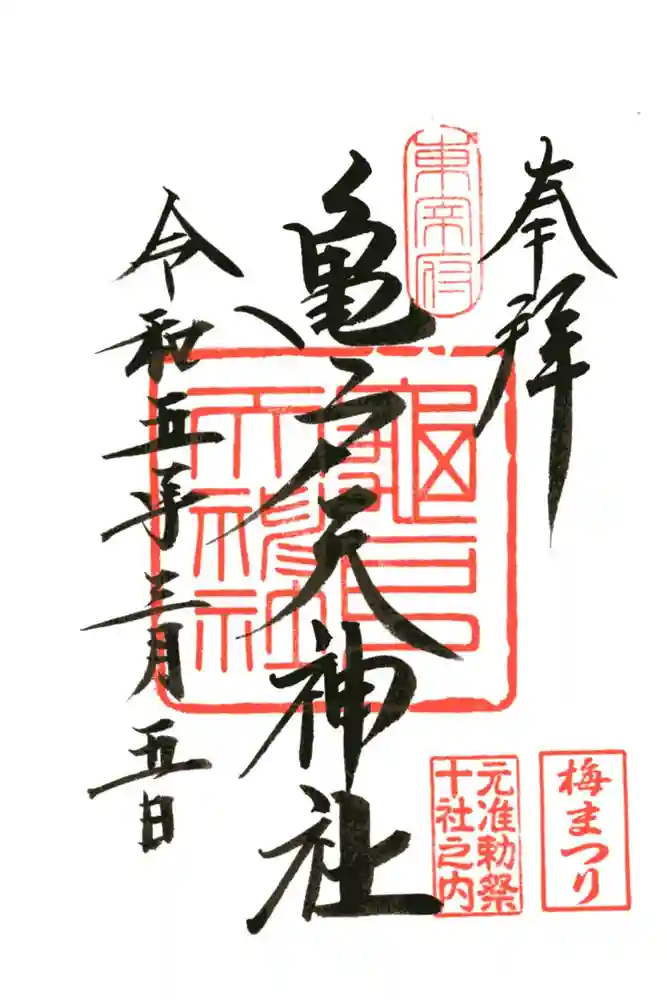 奉拝
東宰府
亀戸天神社
令和五年三月五日
元准勅祭
十社之内
梅まつり